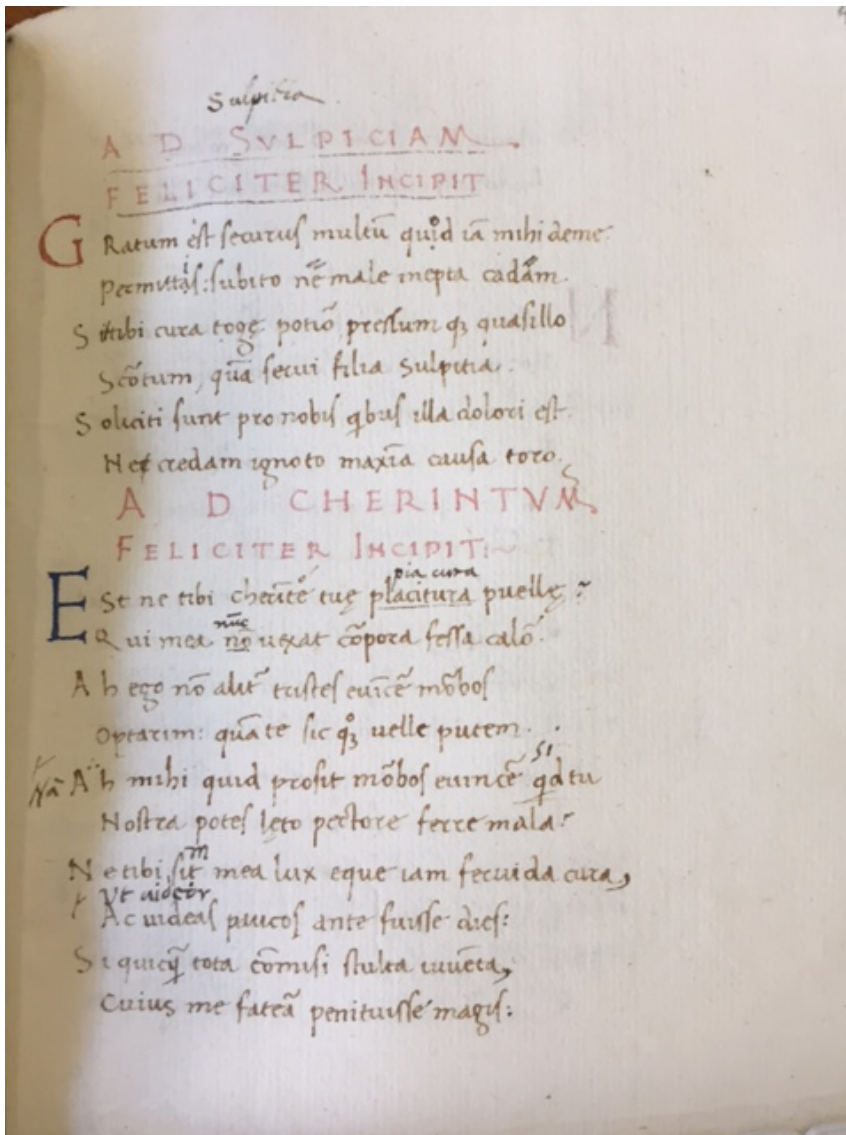 Sulpitia
AD SVLPICIAM
FELICITER INCIPIT
GRatum est securus multū quod iā mihi deme
Permittas: subito nē male inepta cadam.
Sit tibi cura togę potior pressum qȝ quasillo
Scōtum, quā servi filia Sulpitia.
Soliciti sunt pro nobis qbus illa dolori est.
Ne credam ignoto maxīa causa toro.
AD CHERINTVM
FELICITER INCIPIT:
pia cura
ESt ne tibi cherīte tuę placitura puellę?
nūc
Qui mea nō uexat cōpora fessa calō.
Ah ego nō alit̄ tristes euīcē mōbos
Optarim: quā te sic qȝ uelle putem.
si
Nā Ah mihi quid prosit mōbos euincē qd tu
Nostra potes lęto pectore ferre mala?
m
Ne tibi sit mea lux eque iam feruida cura,
Vt uideor
Ac uideas paucos ante fuisse dies:
Si quicq̄ tota cōmisi stulta iuuēta,
Cuius me fateā penituisse magis: